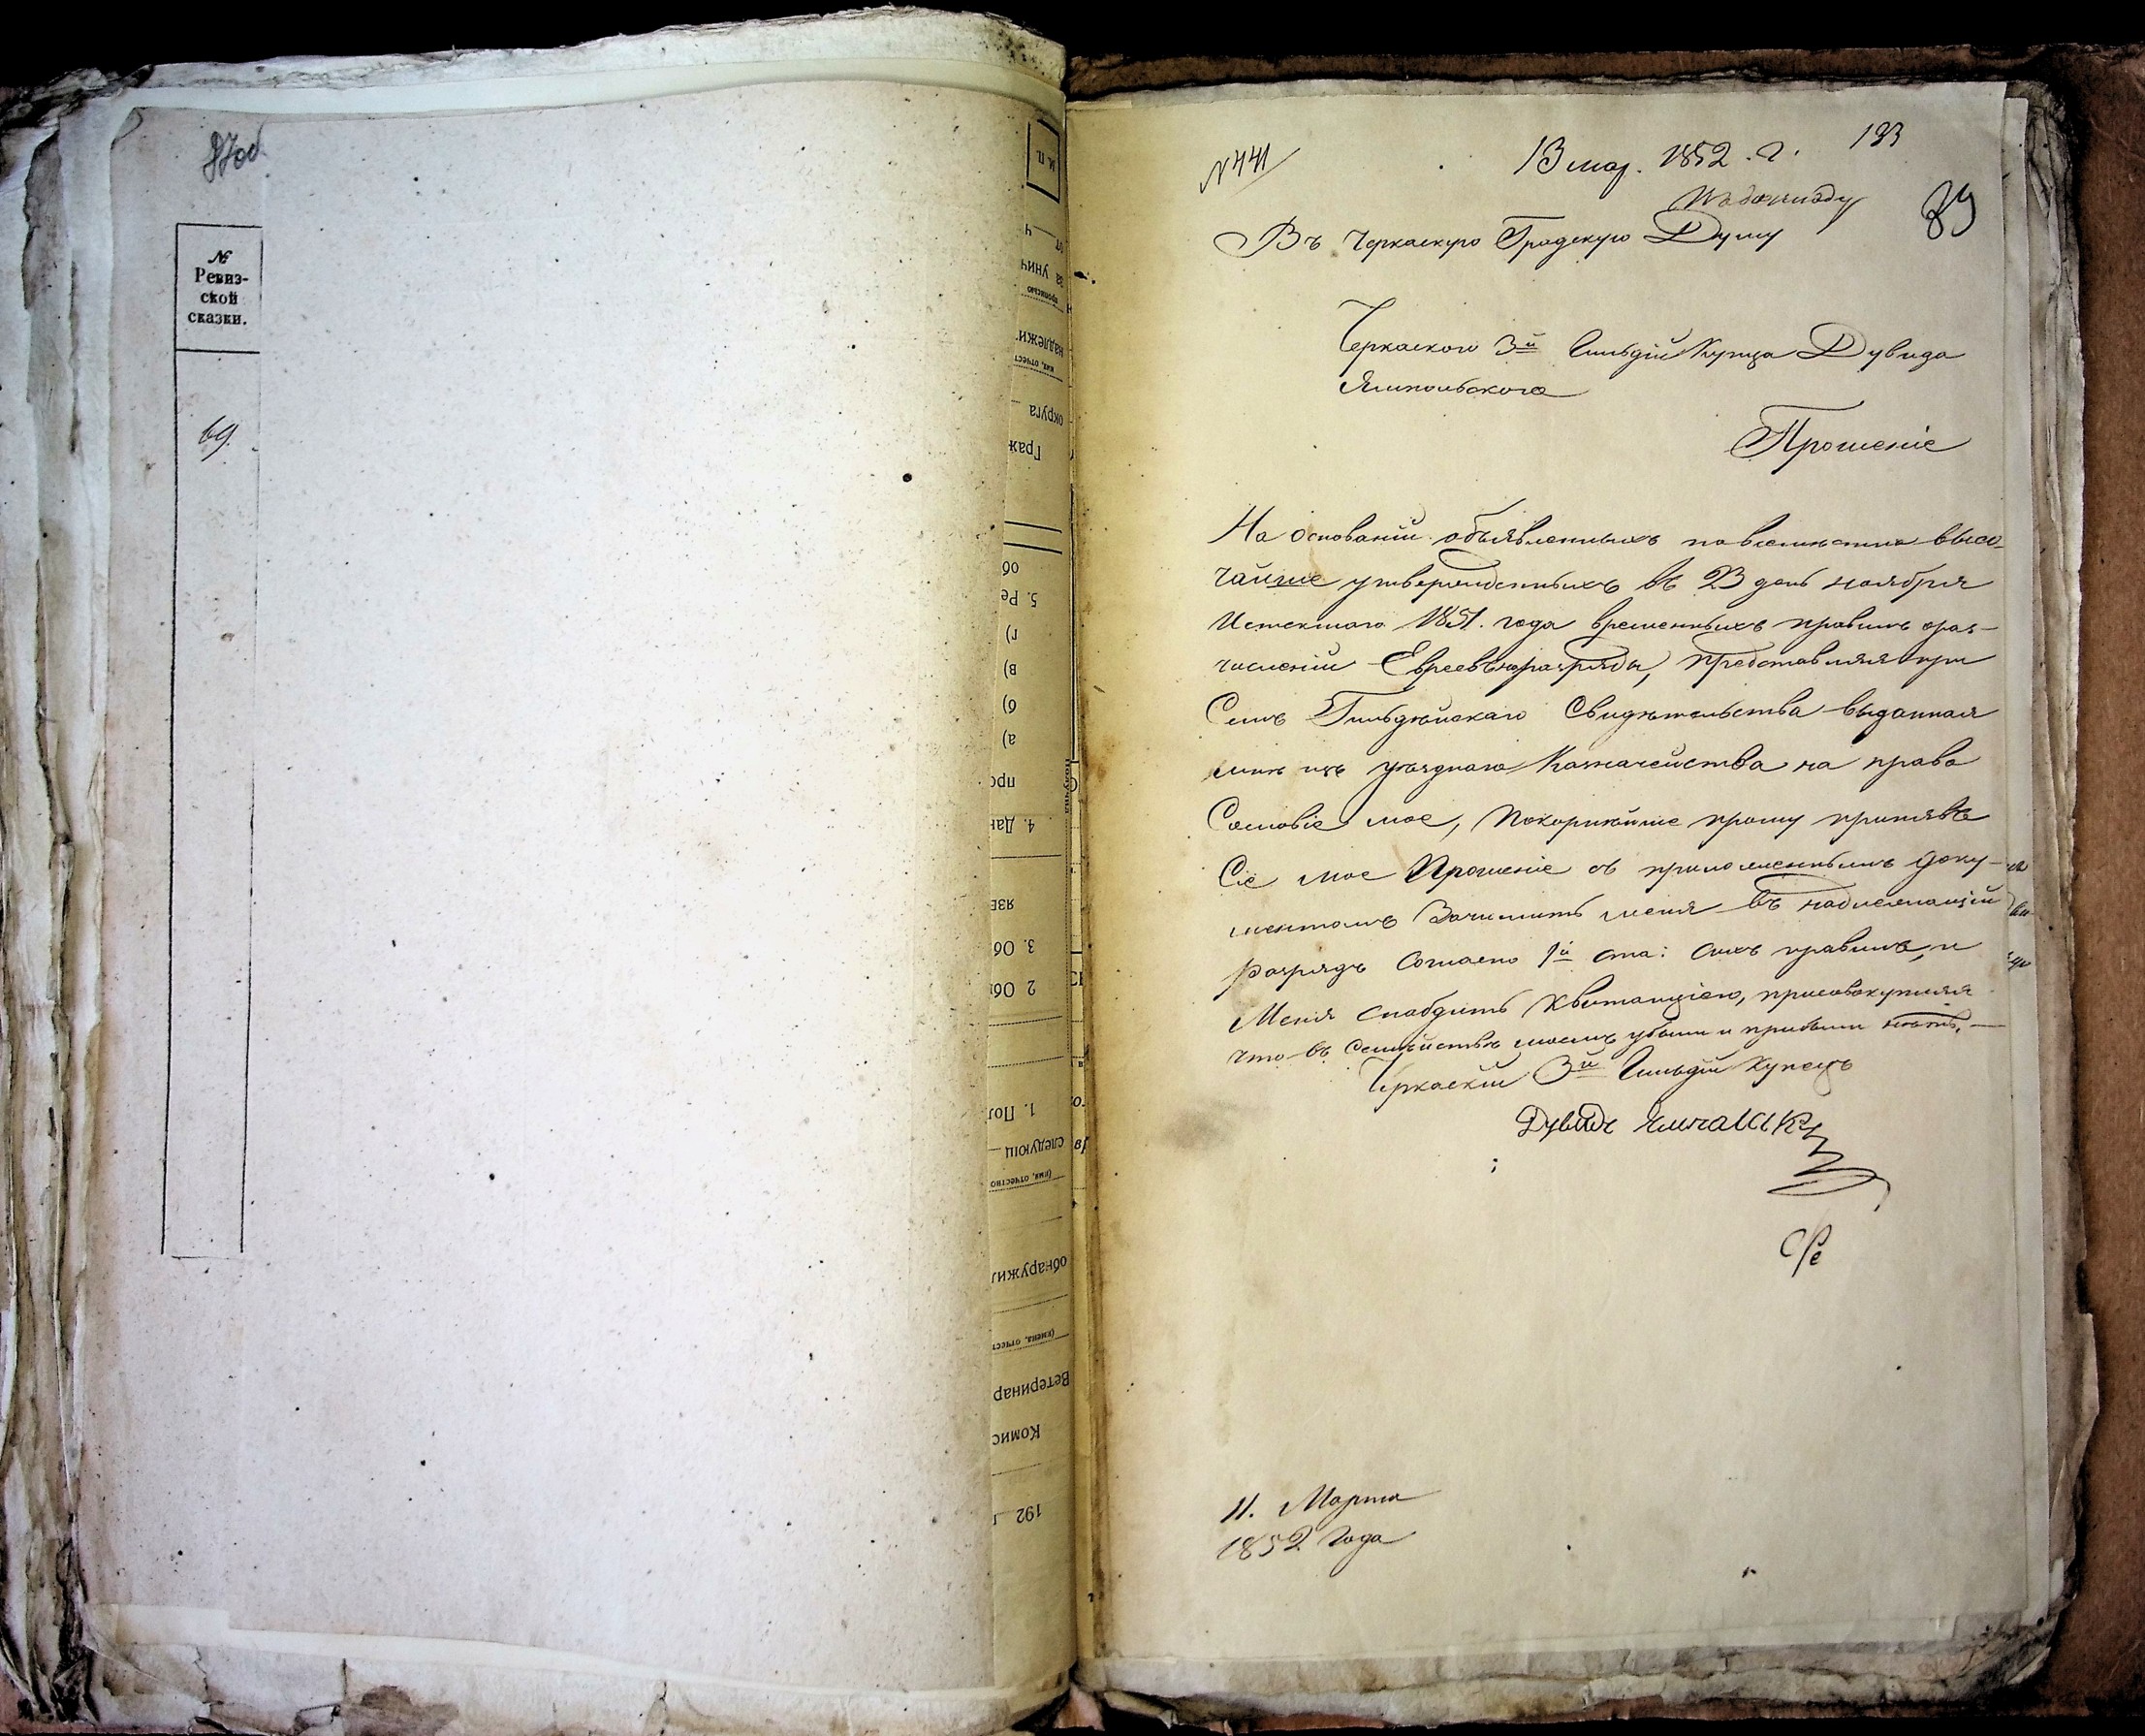 87об
№
Ревиз-
ской
сказки.
69.
И. П.
за унич
прописью
надлежи
имя, отчест
округа
Граж
об
5. Ре
г)
в)
б)
а)
про
4. Дан
язв
3. Об
2 Об
1. Пол
следующ
(имя, отчество
обнаружил
(имена, отчест
Ветеринар
Комис
192 г
№ 441
13 мар. 1852. г.
193
89
Въ Черкаскую Градскую Думу
Черкаского 3й Гильдіи Купца Дувида
Ямпольского
Прошеніе
На основаніи объявленныхъ высо-
чайше утвержденныхъ въ 23 день ноября
Истекшаго 1851. года временныхъ правилъ о раз-
численіи Евреевъ на разряды, представляя при
Семъ Гильдейскаго Свидѣтельства выданная
мнѣ изъ уѣзднаго Казначейства на право
Сословіе мое, Покорнѣйше прошу принявъ
Сіе мое Прошеніе съ приложеннымъ доку-
ментомъ Зачислить меня въ надлежащій
разрядъ Согласно 1й ста: сихъ правилъ, и
Меня снабдить Квитанціею, присовокупляя
что въ Семѣйствѣ моемъ убыли и прибыли нѣтъ, —
Черкаскій 3й Гильдіи Купецъ
Дувидъ
11. Марта
1852 Года